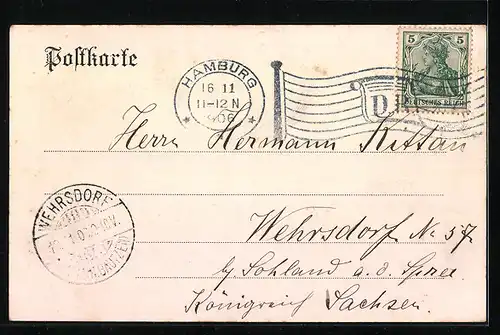 Postkarte
HAMBURG
16 11
11-12 N
06
5 5
DEUTSCHES REICH
D.R.
Herrn Hermann Kittan
WEHRSDORF
(BAUTZEN)
Wehrsdorf No 57
b/ Sohland a. d. Spree
Königreich Sachsen